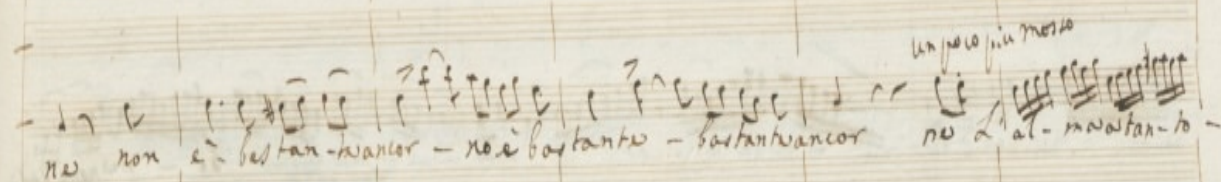 un poco piu mosso
ne non è - bastan - te ancor - no è bastante - bastante ancor ne L'al - ma a tan - to -